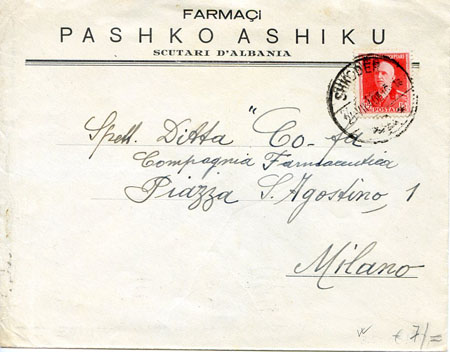 FARMAÇI
PASHKO ASHIKU
SCUTARI D'ALBANIA
SHKODER
POSTAE
15
Spett. Ditta "Co-fa
Compagnia Farmaceutica
Piazza S. Agostino, 1
Milano